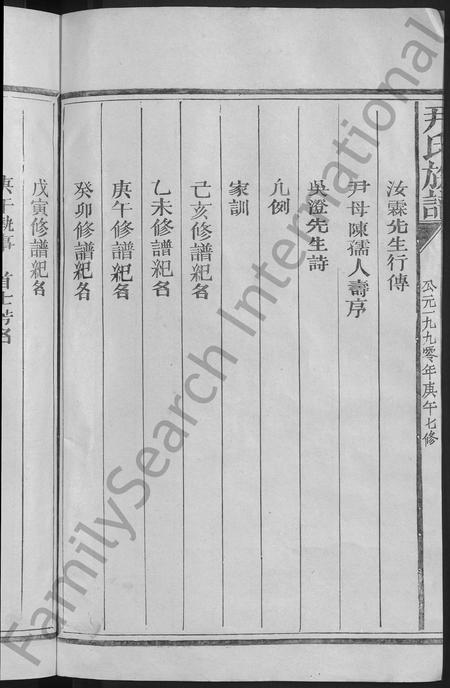 尹氏族譜
公元一九九零年庚午七修
汝霖先生行傳
尹母陳孺人壽序
吳澄先生詩
凡例
家訓
己亥修譜紀名
乙未修譜紀名
庚午修譜紀名
癸卯修譜紀名
戊寅修譜紀名
FamilySearch International